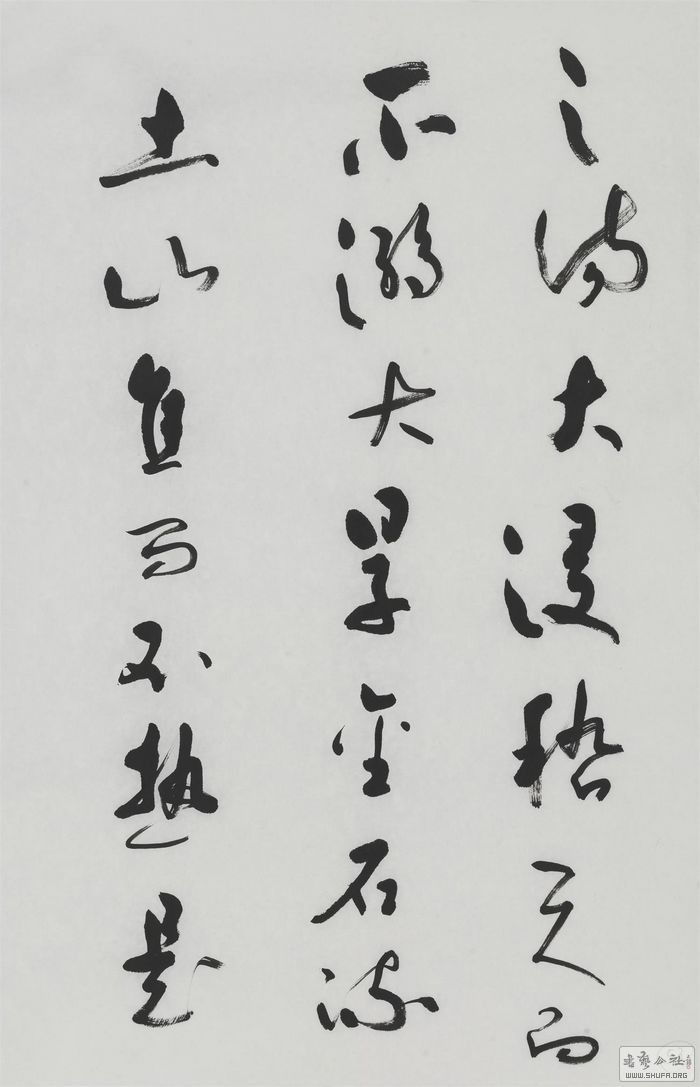 之傷大浸稽天而
不溺大旱金石流
土山焦而不熱是
書藝公社
WWW.SHUFA.ORG